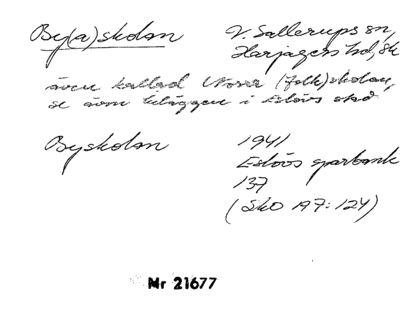 By(a)skolan V. Sallerups sn,
Harjagers hd, Sk
även kallad Norra (folk)skolan,
se även beläggen i Eslövs stad
Byskolan 1941
Eslövs sparbank
137
(Sko A7:124)
Nr 21677